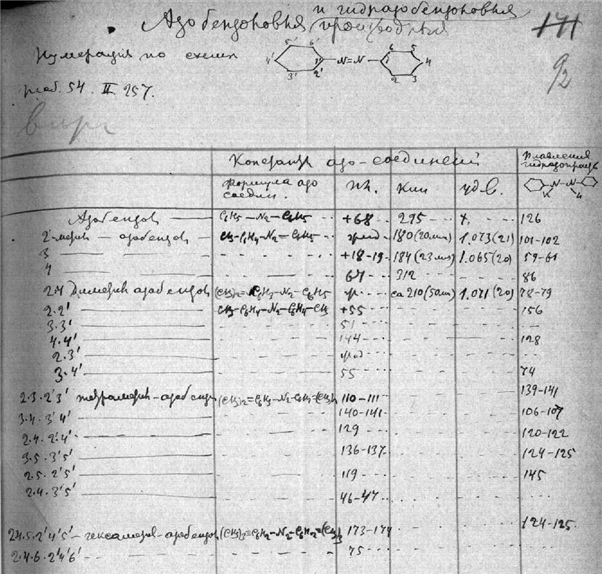 и гидразобензоловыя
Азобензоловыя производныя
171
92
Нумерация по схемѣ
5' 6' 4' 1' 3' 2' N=N 6 5 1 4 2 3
таб. 54. II. 257.
Константы азо-соединенiй
Плавленiя
гидразопроизв.
Формула азо
соедин.
пл.
Кип
уд. в.
N — N
H H
Азобензол C6H5-N2-C6H5 +68 295 126
2-метил азобензол CH3-C6H4-N2-C6H5 жид 180 (20 mm) 1.073 (21) 101-102
3 +18-19 184 (23 mm) 1.065 (20) 59-61
4 67 312 86
2.4 Диметил азобензол (CH3)2=C6H3-N2-C6H5 ca 210 (50 mm) 1.071 (20) 78-79
2.2' CH3-C6H4-N2-C6H4-CH3 +55 156
3.3' 51 —
4.4' 144 128
2.3' жид
3.4' 55 74
2.3.2'3' тетраметил-азобензол (CH3)2=C6H3-N2-C6H3=(CH3)2 110-111 139-141
3.4.3'4' 140-141 106-107
2.4.2'4' 129 120-122
3.5.3'5' 136-137 124-125
2.5.2'5' 119 145
2.4.3'5' 46-47
2.4.5.2'4'5'-гексаметил-азобензол (CH3)3=C6H2-N2-C6H2=(CH3)3 173-174 124-125
2.4.6.2'4'6' 75